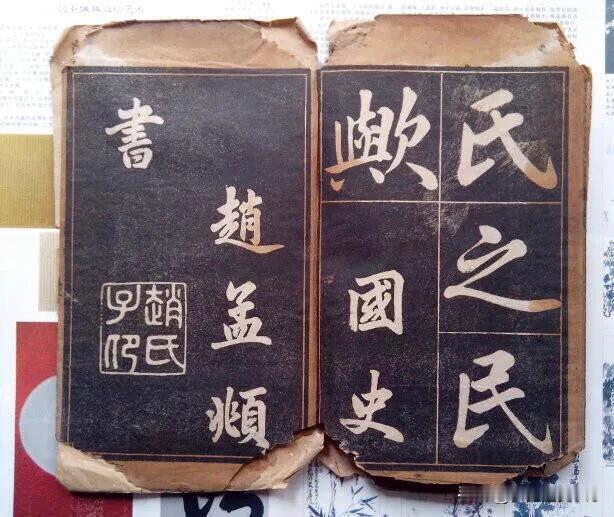 氏之民
歟
國史
趙孟頫
書
趙氏
子卬